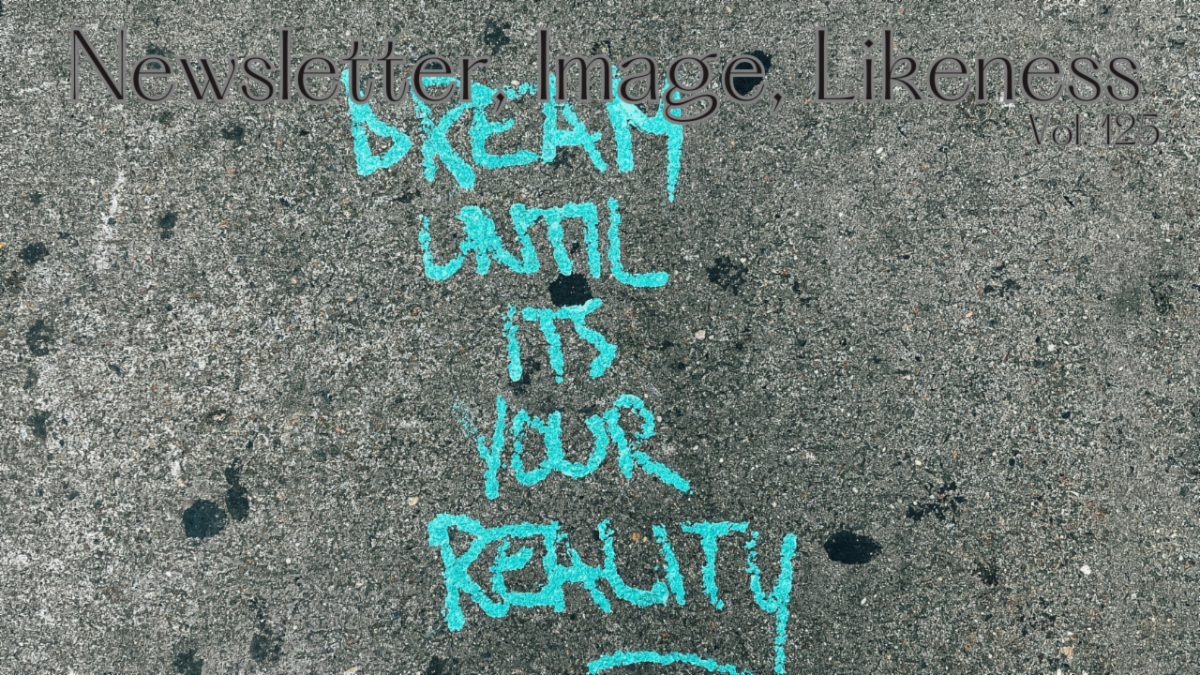 Newsletter, Image, Likeness
Vol. 125
DREAM
UNTIL
ITS
YOUR
REALITY